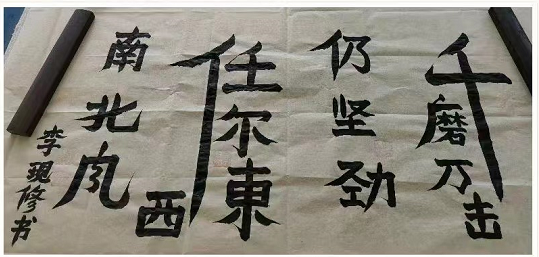 千磨万击
仍坚劲
任尔東西
南北风
李现修书